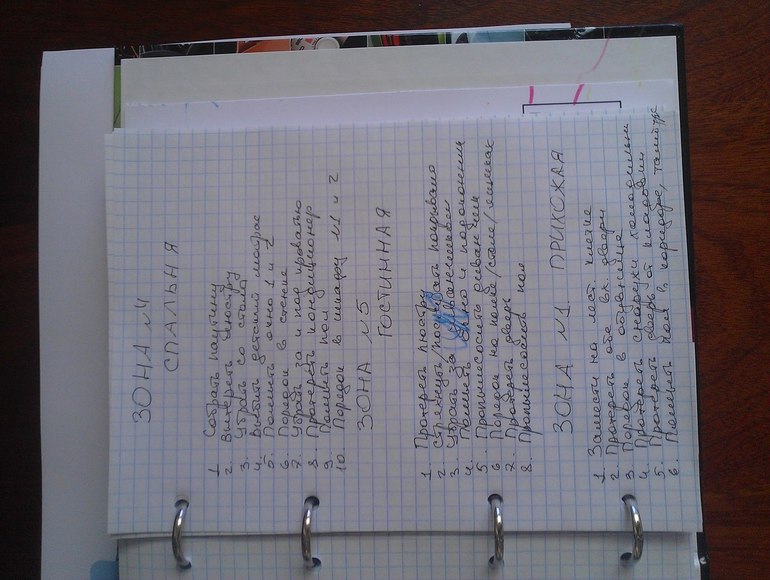 ЗОНА №4
СПАЛЬНЯ
1. Собрать паутину
2. Вытереть люстру
3. Убрать со стола
4. Выбить детский матрас
5. Помыть окно 1 и 2
6. Порядок в стенке
7. Убрать за и под кроватью
8. Протереть кондиционер
9. Помыть пол
10. Порядок в шкафу №1 и 2
ЗОНА №5
ГОСТИННАЯ
1. Протереть люстру
2. Стряхнуть/постирать покрывало
3. Убрать за
4. Помыть окно и подоконник
5. Пропылесосить диван
6. Порядок на комоде/столе/
7. Протереть дверь
8. Пропылесосить пол
ЗОНА №1 ПРИХОЖАЯ
1. Замести на лест. клетке
2. Протереть обе вх. двери
3. Порядок в обувнице
4. Протереть снаружи холодильник
5. Протереть дверь в кладовку
6. Помыть пол в коридоре, тамбуре